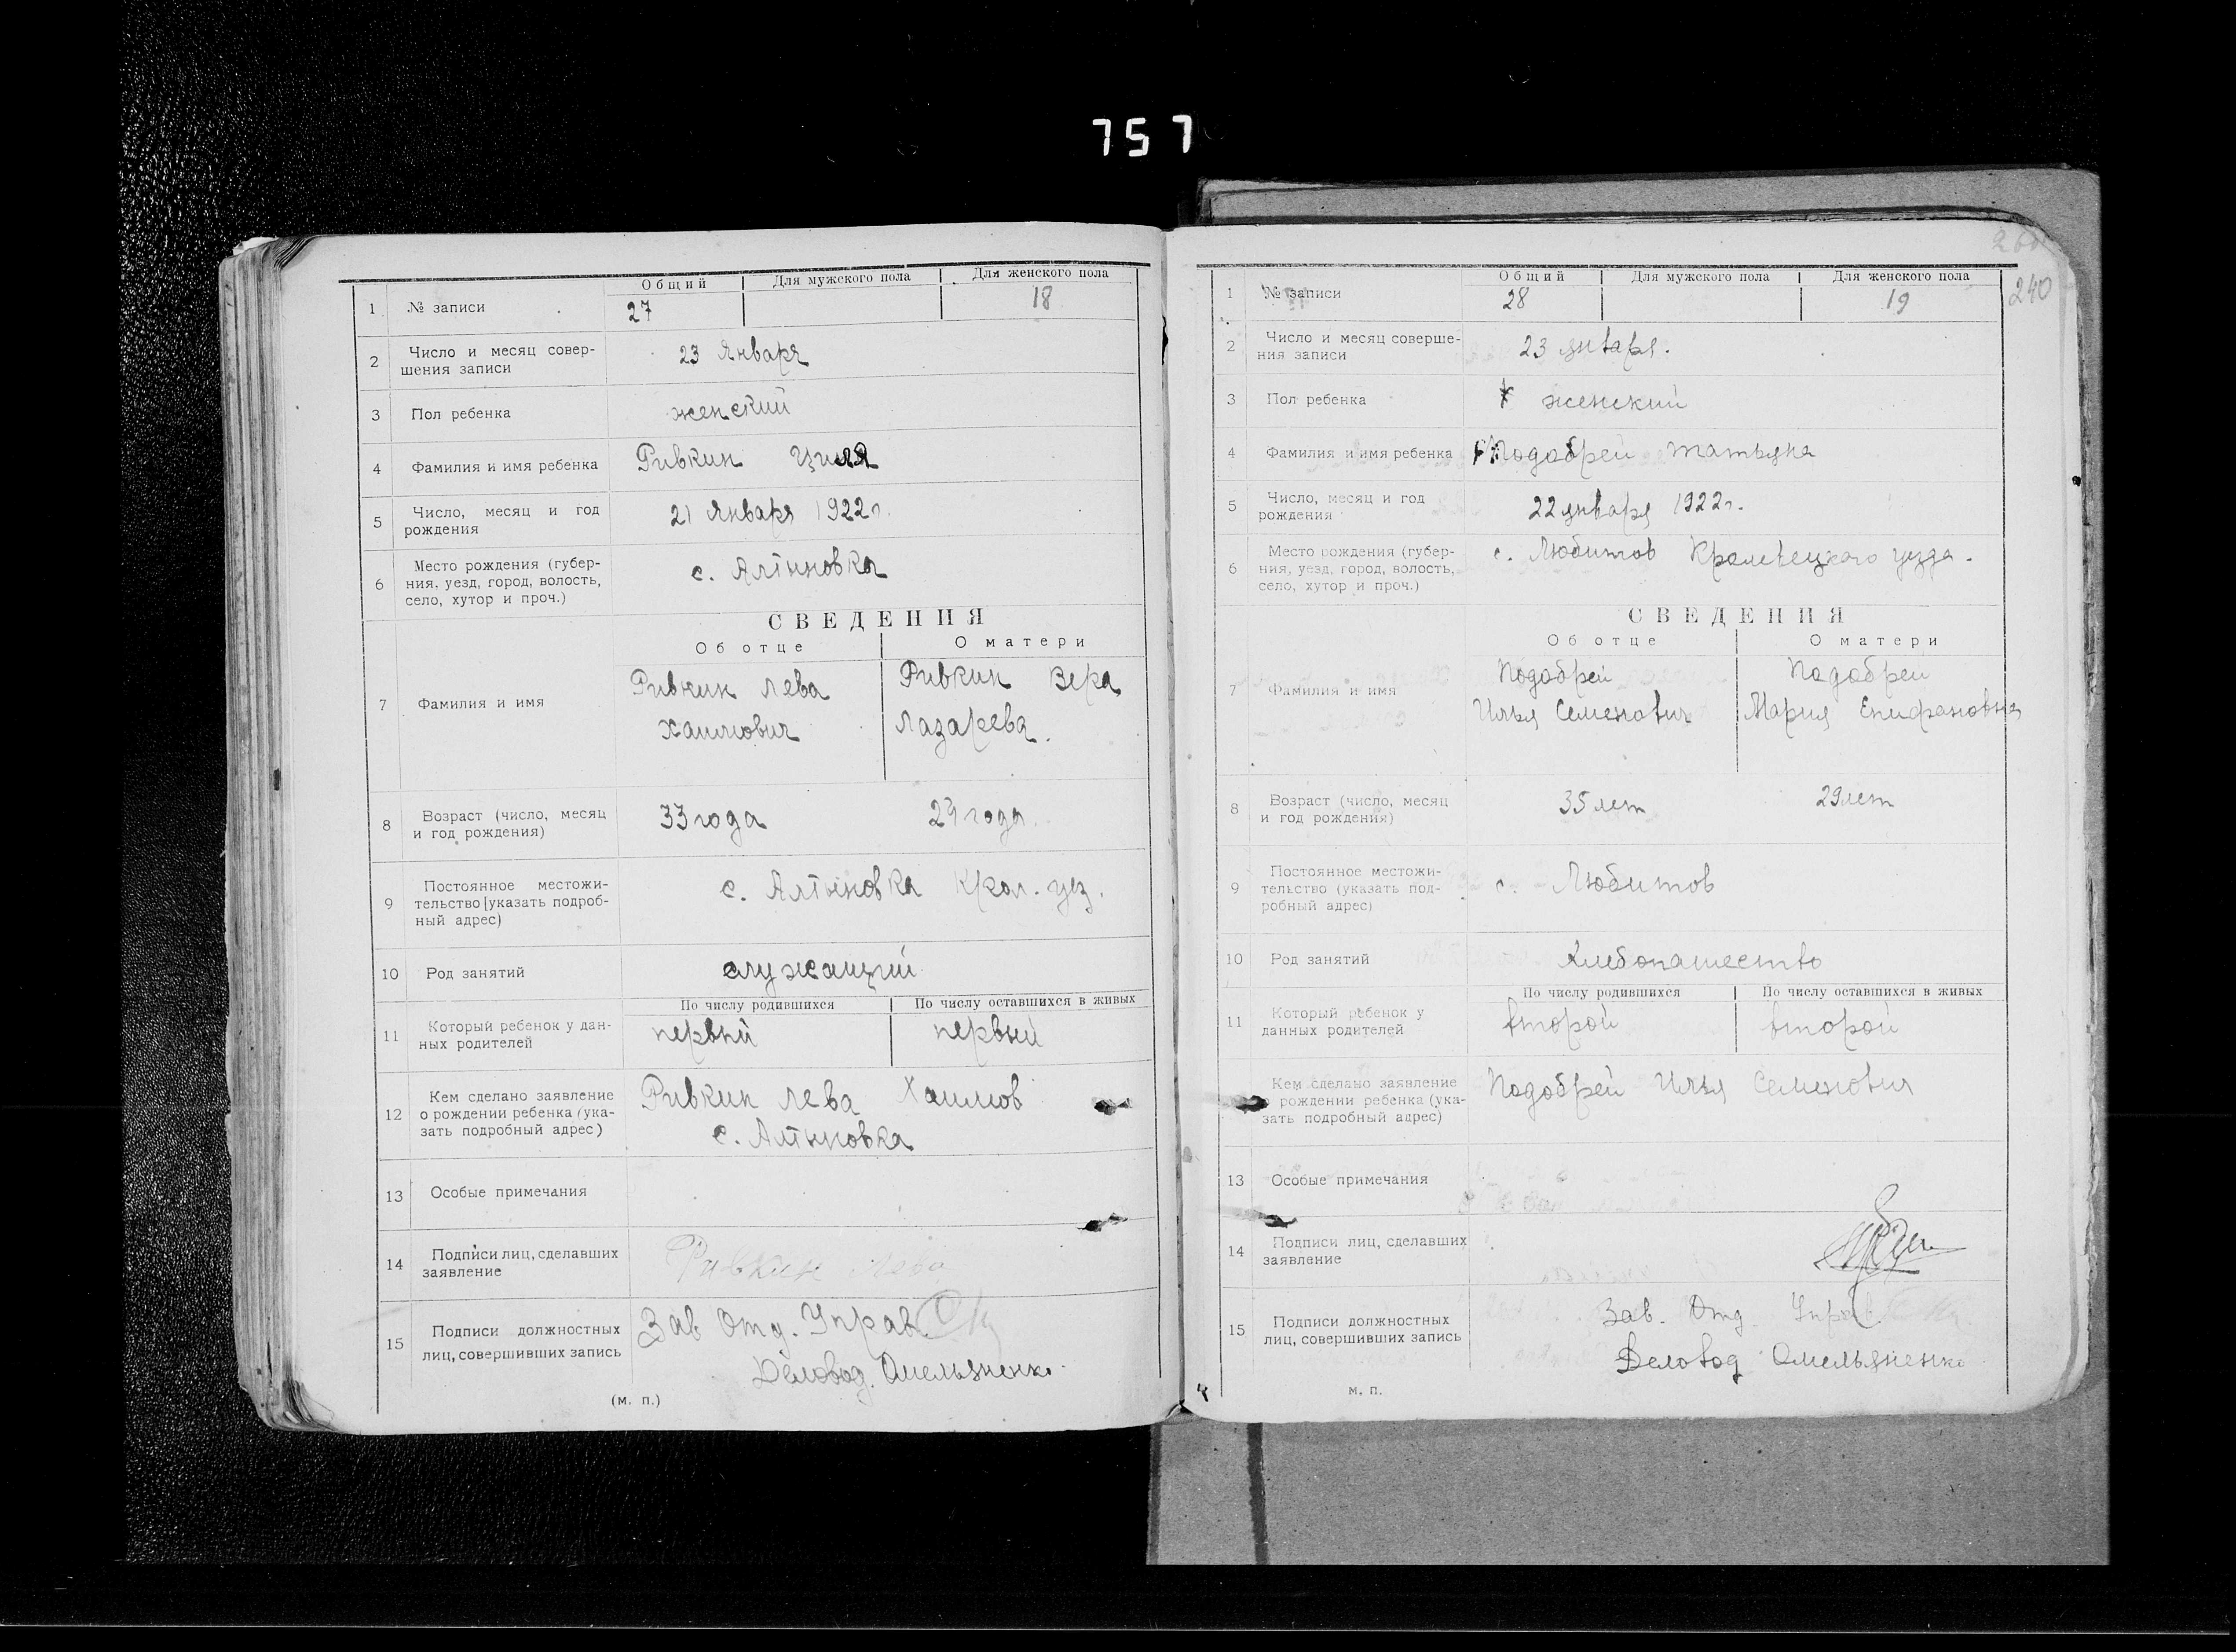 757
Общий Для мужского пола Для женского пола
1 № записи 27 18
2 Число и месяц совер-
шения записи 23 Января
3 Пол ребенка женский
4 Фамилия и имя ребенка Ривкин Циля
5 Число, месяц и год
рождения 21 Января 1922г.
6 Место рождения (губер-
ния, уезд, город, волость,
село, хутор и проч.) с. Алтыновка
СВЕДЕНИЯ
Об отце О матери
7 Фамилия и имя
Ривкин Лева Ривкин Вера
Хаимович Лазарева.
8 Возраст (число, месяц
и год рождения) 33 года 24 года.
9 Постоянное местожи-
тельство [указать подроб-
ный адрес) с. Алтыновка Крол. уез.
10 Род занятий служащий
По числу родившихся По числу оставшихся в живых
11 Который ребенок у дан-
ных родителей первый первый
12 Кем сделано заявление
о рождении ребенка (ука-
зать подробный адрес) Ривкин Лева Хаимов
с. Алтыновка
13 Особые примечания
14 Подписи лиц, сделавших
заявление Ривкин Лева
15 Подписи должностных
лиц, совершивших запись Зав. Отд. Управ.
Деловод. Омельяненко
(м. п.)
240
Общий Для мужского пола Для женского пола
1 № записи 28 19
2 Число и месяц соверше-
ния записи 23 января.
3 Пол ребенка женский
4 Фамилия и имя ребенка Подобрей Татьяна
5 Число, месяц и год
рождения 22 января 1922г.
6 Место рождения (губер-
ния, уезд, город, волость,
село, хутор и проч.) с. Любитов Кролевецкого уезда.
СВЕДЕНИЯ
Об отце О матери
7 Фамилия и имя
Подобрей Подобрей
Илья Семенович Мария Епифановна
8 Возраст (число, месяц
и год рождения) 35 лет 29 лет
9 Постоянное местожи-
тельство (указать под-
робный адрес) с. Любитов
10 Род занятий Хлебопашество
По числу родившихся По числу оставшихся в живых
11 Который ребенок у
данных родителей второй второй
12 Кем сделано заявление
о рождении ребенка (ука-
зать подробный адрес) Подобрей Илья Семенович
13 Особые примечания
14 Подписи лиц, сделавших
заявление
15 Подписи должностных
лиц, совершивших запись Зав. Отд. Управ.
Деловод Омельяненко
м. п.